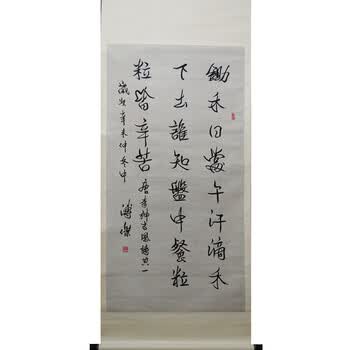 鋤禾日當午汗滴禾
下土誰知盤中餐粒
粒皆辛苦 唐李紳古風詩其一
辛未仲冬中 溥傑